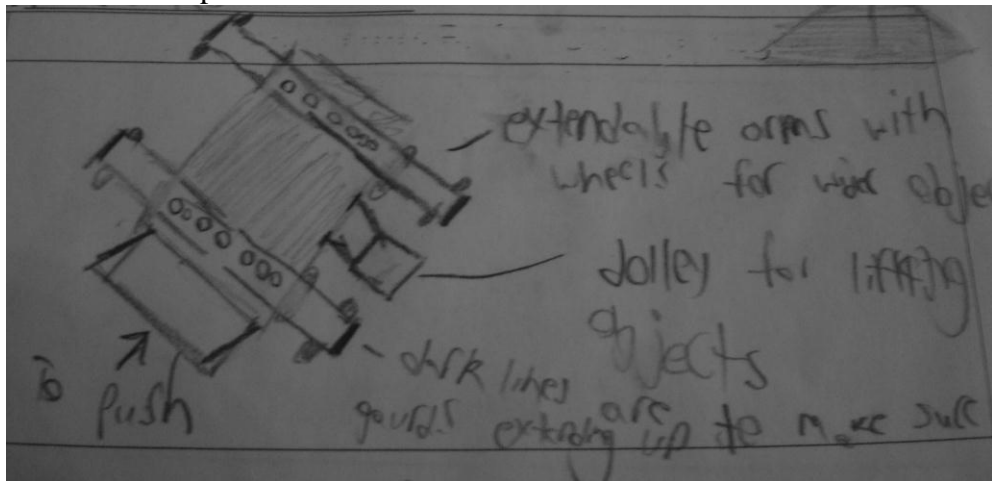 extendable arms with
wheels for wider objec
dolley for lifting
objects
To
push
dark lines are
gaurds extending up to make sure